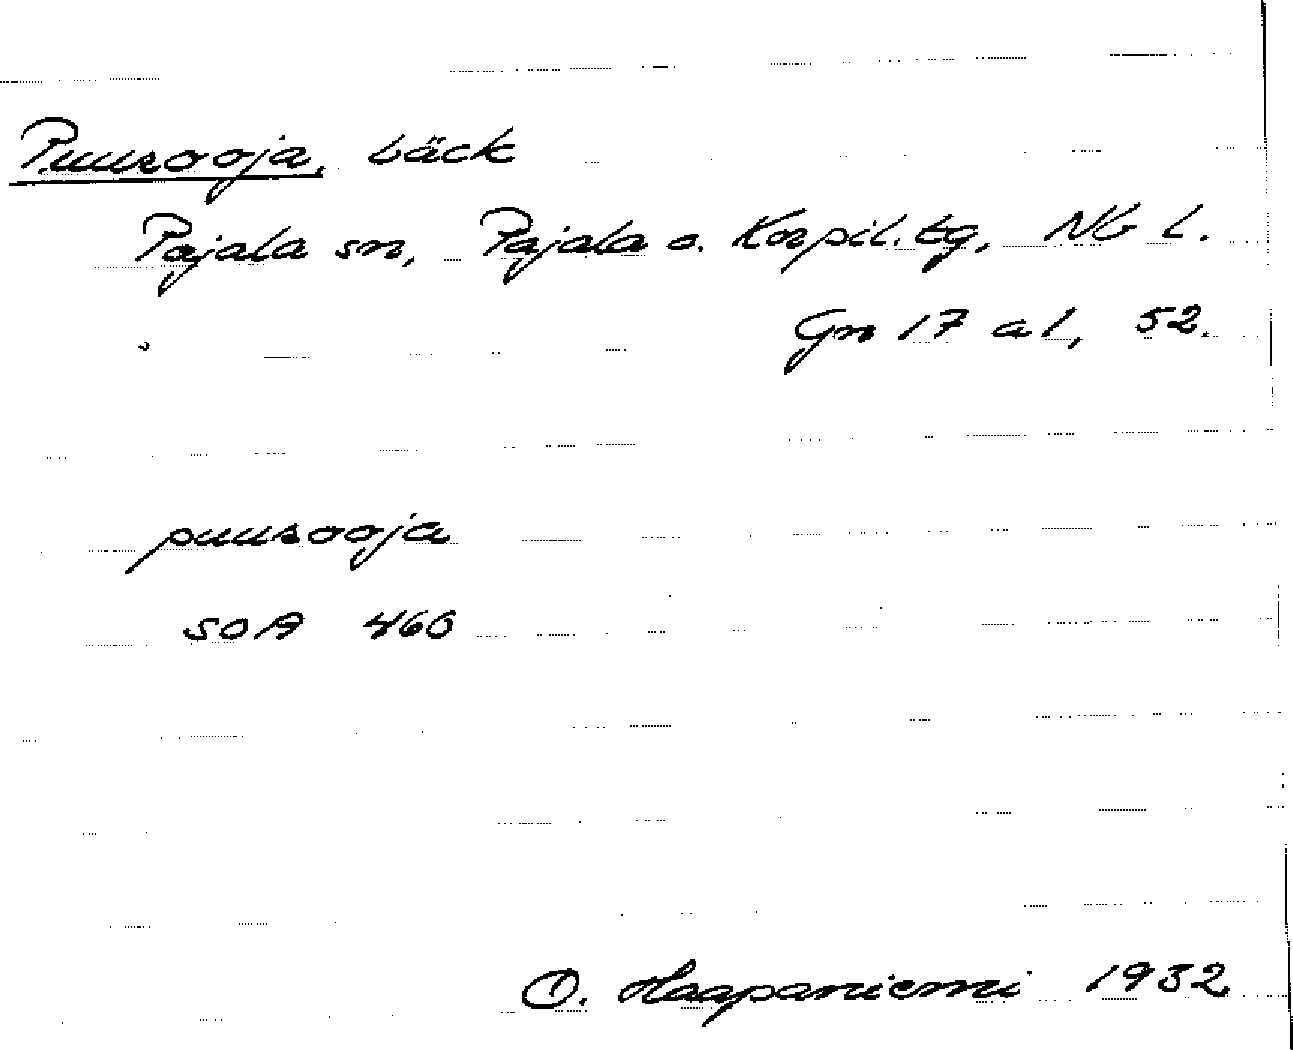 Puurooja, bäck
Pajala sn, Pajala o. Korpil. tg, Nb l.
Gn 17 a 1, 52.
puurooja
SOA 460
O. Haapaniemi 1932